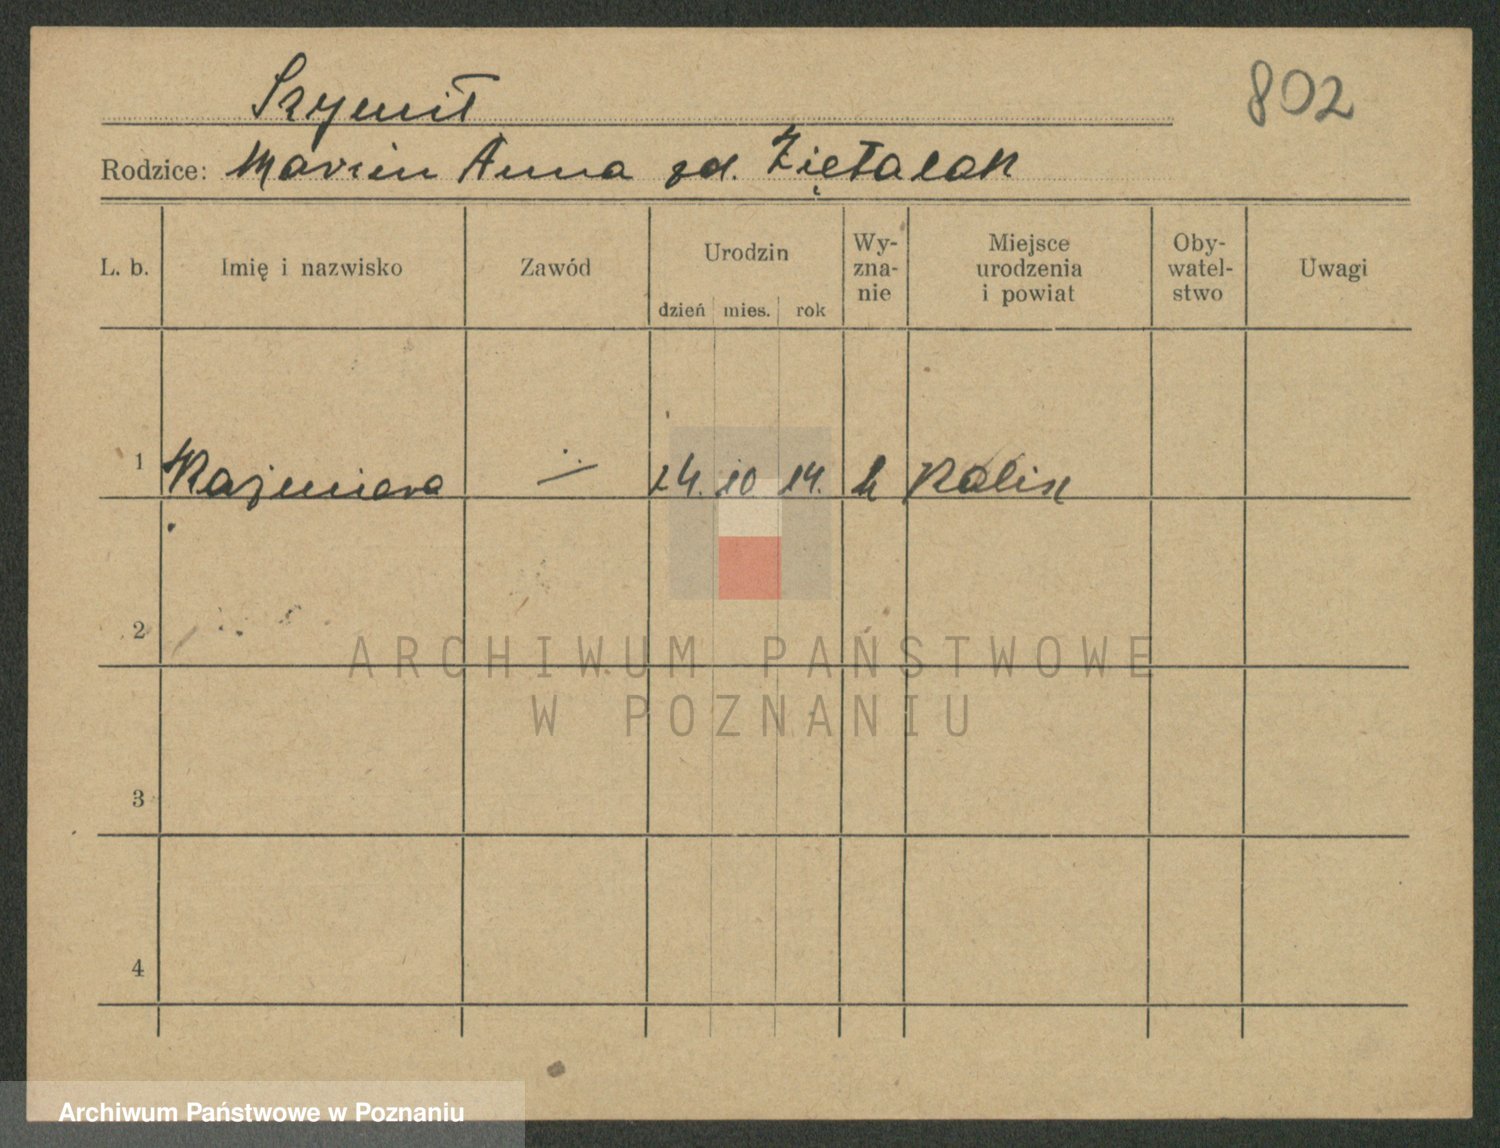 Szymił
802
Rodzice: Marcin Anna zd. Ziętalak
L. b. Imię i nazwisko Zawód Urodzin Wy- Miejsce Oby- Uwagi
zna- urodzenia watel-
nie i powiat stwo
dzień mies. rok
1 Kazimiera 24. 10 14. k Kalisz
2
ARCHIWUM PAŃSTWOWE
W POZNANIU
3
4
Archiwum Państwowe w Poznaniu